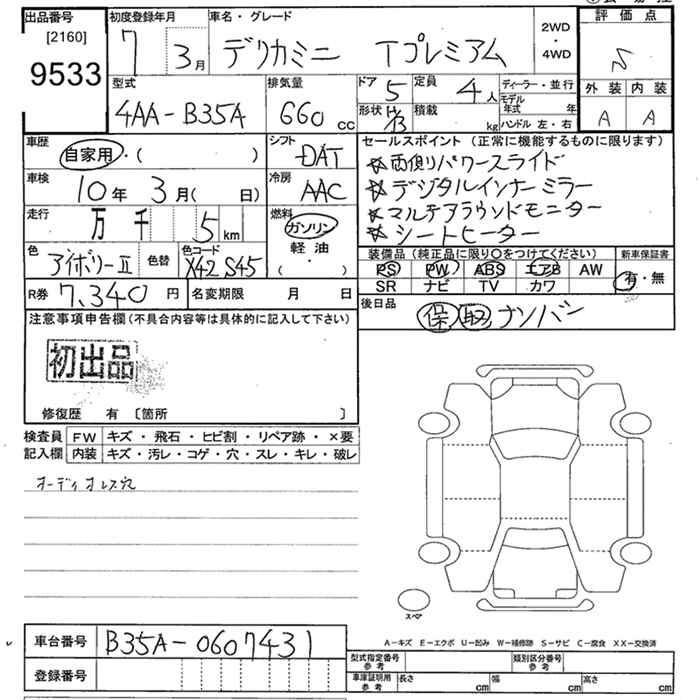 出品番号
[2160]
9533
初度登録年月
7 3月
車名・グレード
デリカミニ Tプレミアム
2WD
・
4WD
評価点
S
外装 内装
A A
型式
4AA-B35A
排気量
660 cc
ドア 5
定員 4人
形状 H/B
積載 kg
ディーラー・並行
モデル年式 年
ハンドル 左・右
車歴
自家用・( )
シフト
DAT
車検
10年 3月( 日)
冷房
AAC
走行
万 千 5 km
燃料
ガソリン
軽油
( ・ )
色
アイボリーII
色替
色コード
X42 S45
R券 7,340 円
名変期限 月 日
セールスポイント (正常に機能するものに限ります)
☆両側パワースライド
☆デジタルインナーミラー
☆マルチアラウンドモニター
☆シートヒーター
装備品 (純正品に限り○をつけてください)
PS PW ABS エアB AW
SR ナビ TV カワ
新車保証書
有・無
後日品
保 取 ナンバー
注意事項申告欄 (不具合内容等は具体的に記入して下さい)
初出品
修復歴 有 〔箇所 〕
検査員記入欄
FW キズ・飛石・ヒビ割・リペア跡・×要
内装 キズ・汚レ・コゲ・穴・スレ・キレ・破レ
オーディオレス穴
スペア
A-キズ E-エクボ U-凹み W-補修跡 S-サビ C-腐食 XX-交換済
車台番号 B35A-0607431
登録番号
型式指定番号 参考
類別区分番号 参考
車庫証明用 参考
長さ cm
幅 cm
高さ cm